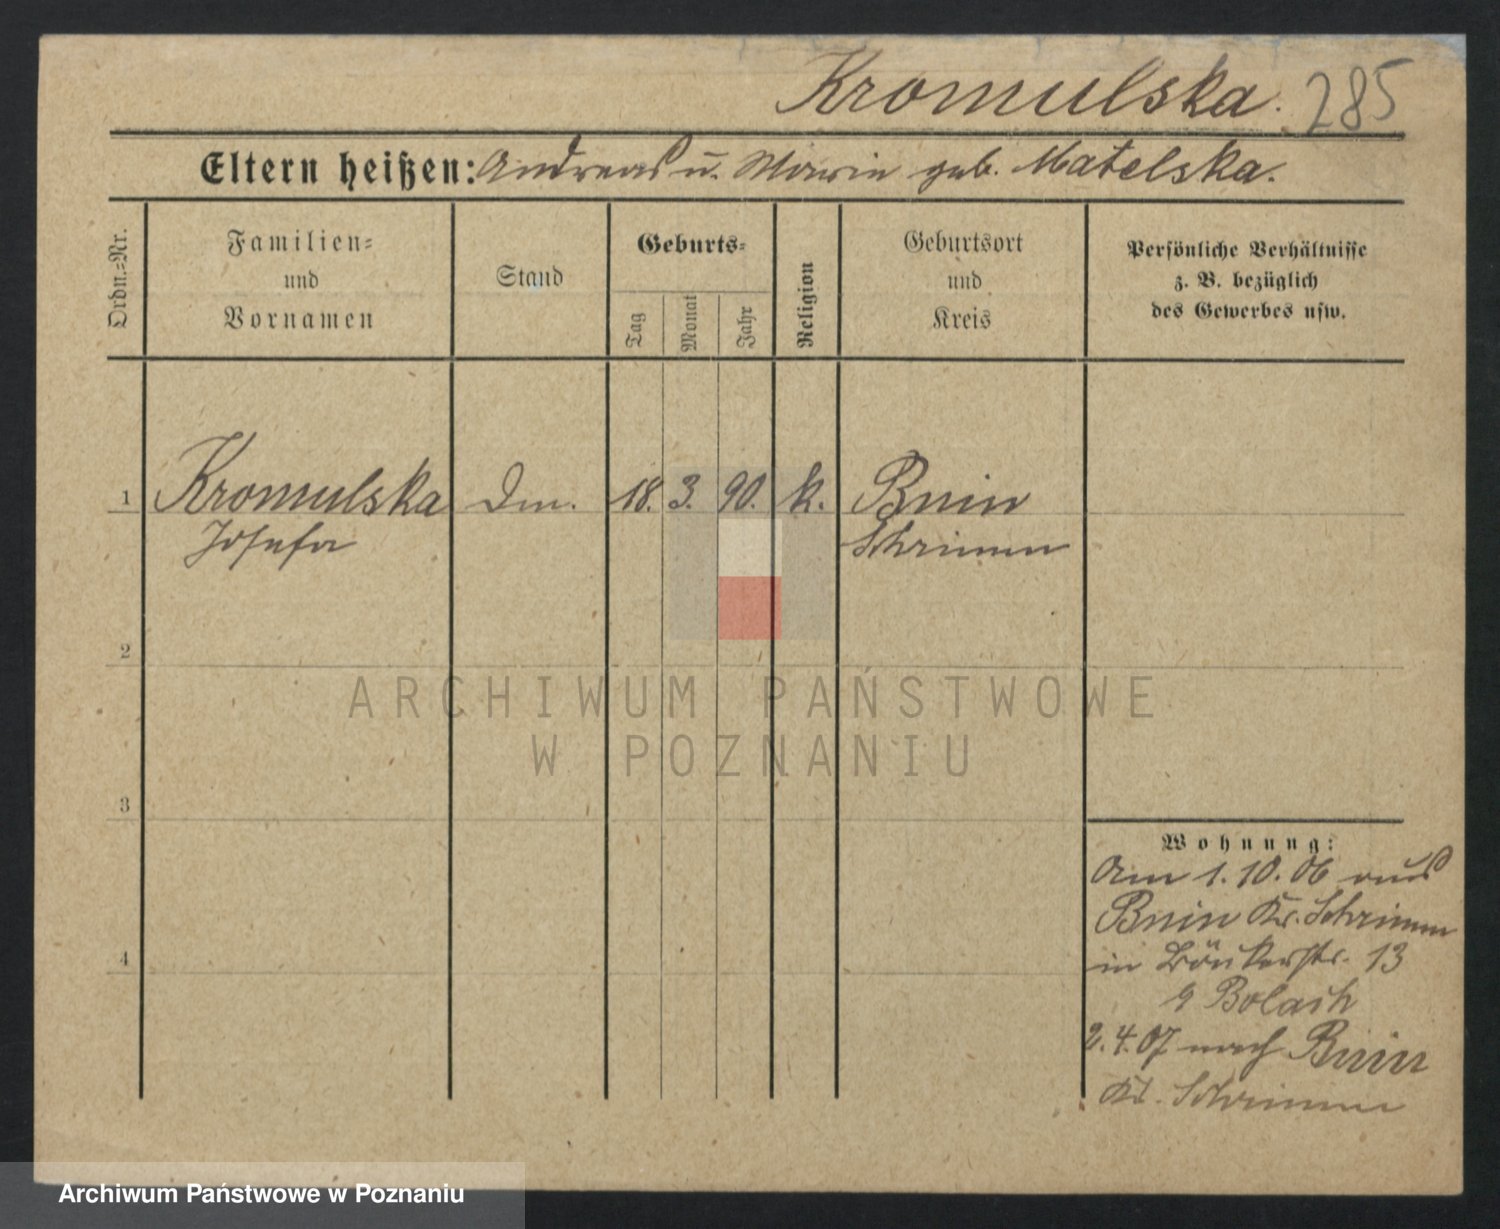 Kromulska.
285
Eltern heißen: Andreas u. Marie geb. Matelska.
Ordn.=Nr.
Familien=
und
Vornamen
Stand
Geburts=
Tag
Monat
Jahr
Religion
Geburtsort
und
Kreis
Persönliche Verhältnisse
z. B. bezüglich
des Gewerbes usw.
1 Kromulska 18. 3. 90. k. Bnin
Josefa Schrimm
2
ARCHIWUM PAŃSTWOWE
W POZNANIU
3
Wohnung:
Am 1. 10. 06 aus
Bnin Kr. Schrimm
4
in 13
Bolach
2. 4. 07 nach Bnin
Kr. Schrimm
Archiwum Państwowe w Poznaniu